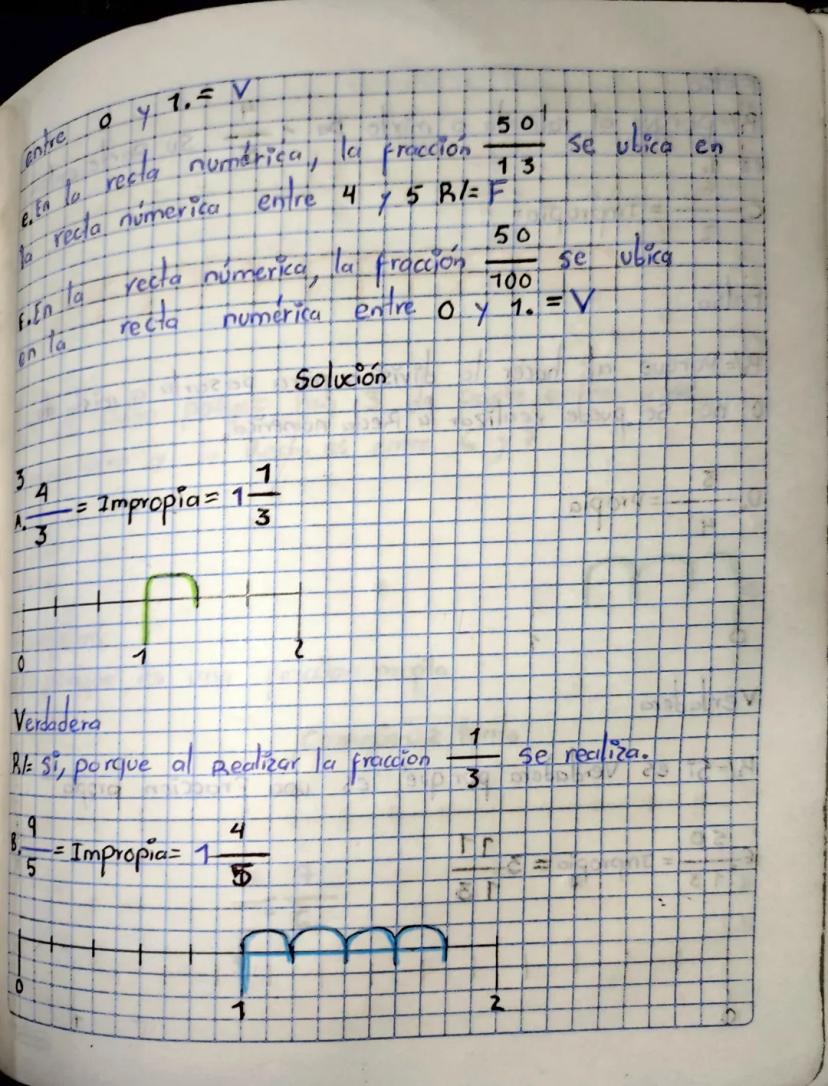 entre 0 y 1. = V
e. En la recta numérica, la fracción 50/13 se ubica en
la recta númerica entre 4 y 5 R/= F
F. En la recta númerica, la fracción 50/100 se ubica
en la recta numérica entre 0 y 1. = V
Solución
3
A. 4/3 = Impropia = 1 1/3
0 1 2
Verdadera
R/= Si, porque al Realizar la fraccion 1/3 se realiza.
B. 9/5 = Impropia = 1 4/5
0 1 2